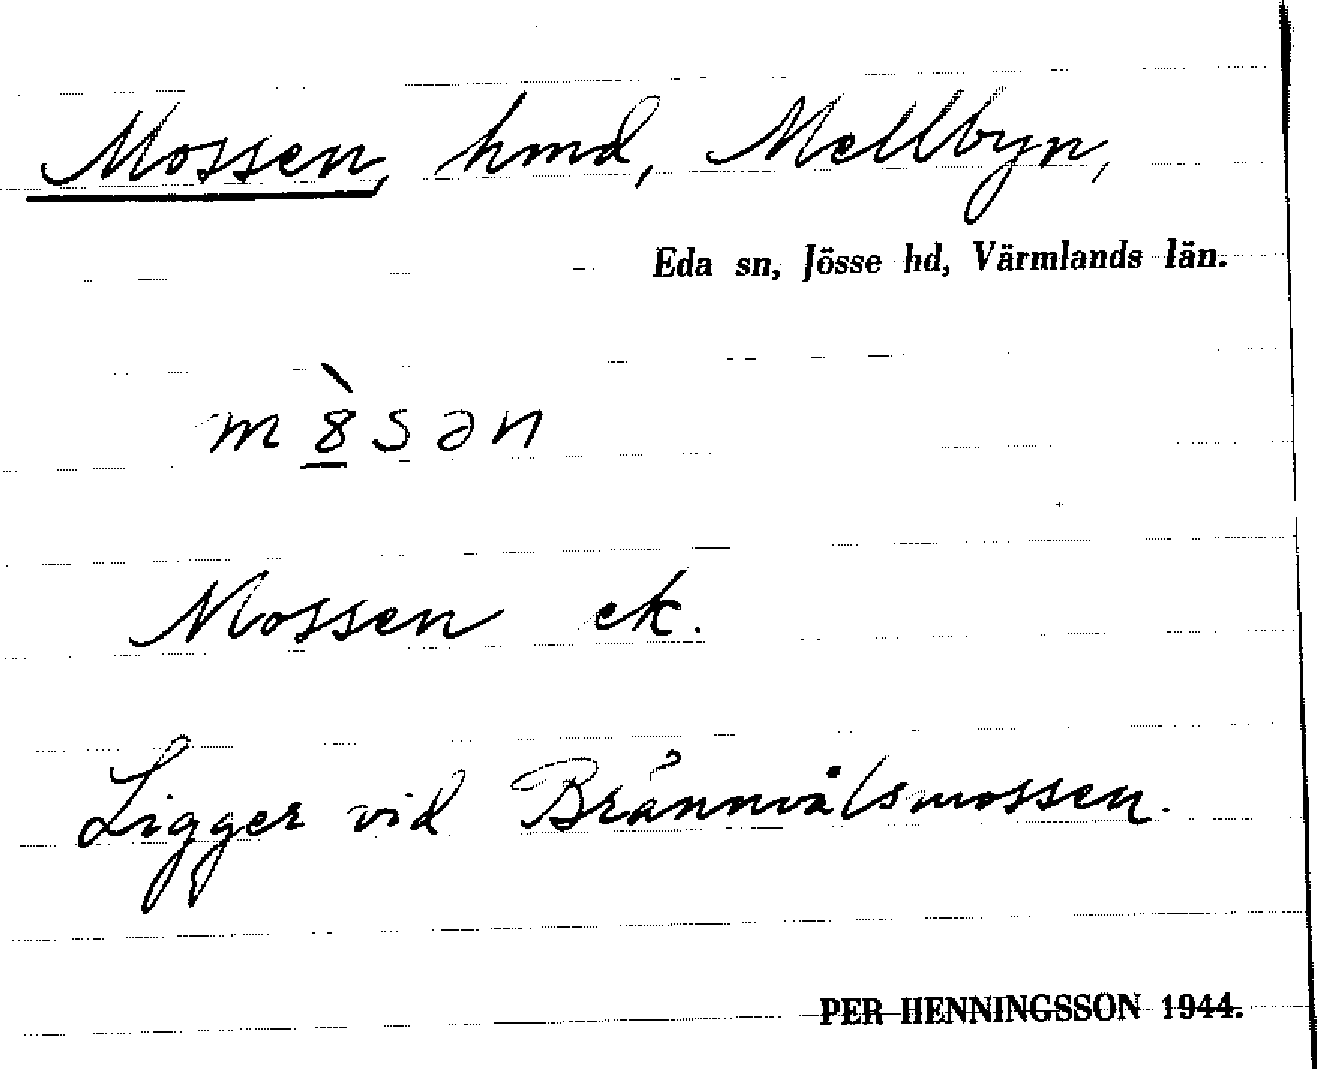 Mossen, hmd, Mellbyn,
Eda sn, Jösse hd, Värmlands län.
m8̲̀sən
Mossen ek.
Ligger vid Brännvålsmossen.
PER HENNINGSSON 1944.